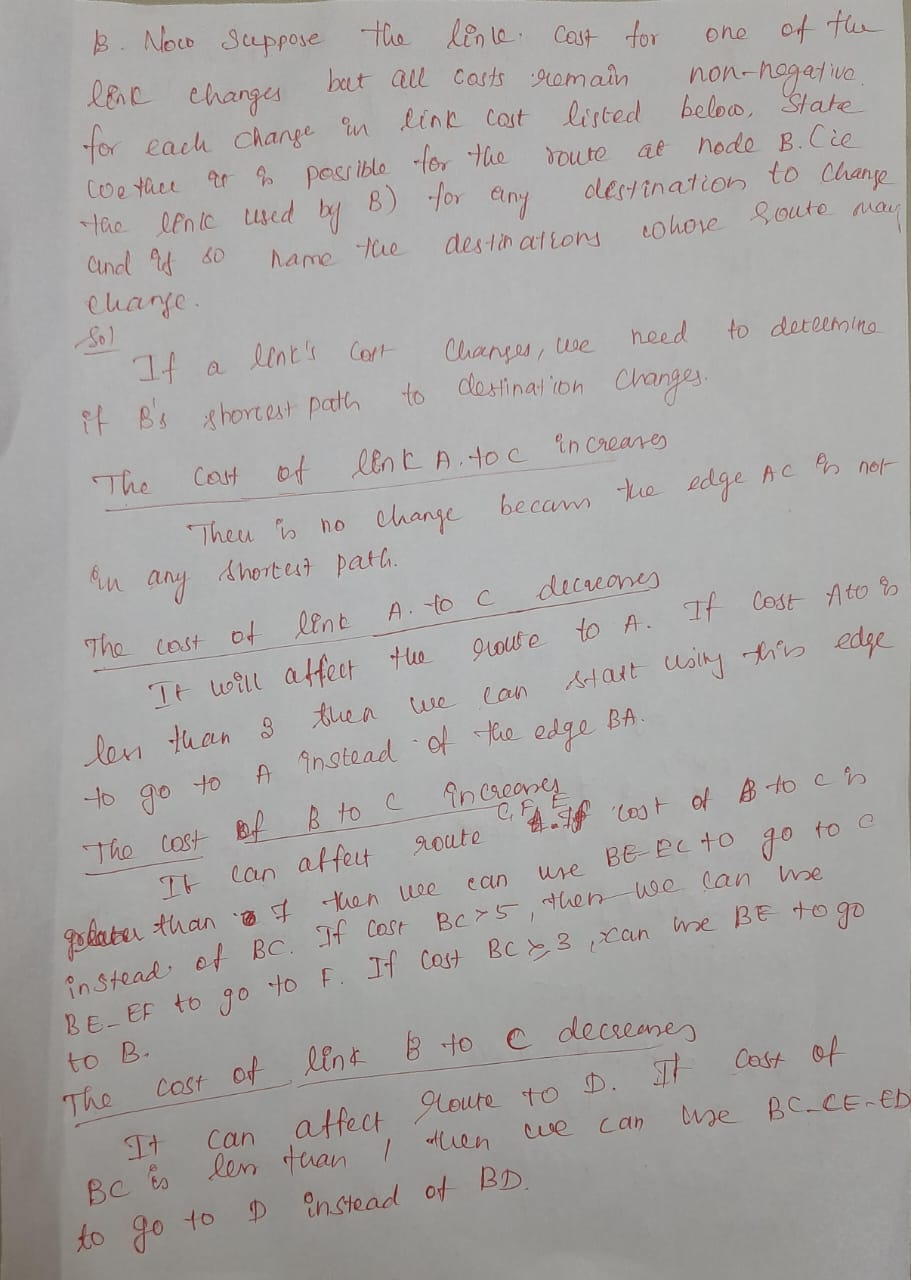 B. Now Suppose the link cost for one of the
link changes but all costs remain non-negative
for each change in link cost listed below, State
wether it is possible for the route at node B. (ie
the link used by B) for any destination to change
and if so name the destinations whose route may
change.
Sol
If a link's cost changes, we need to determine
if B's shortest path to destination changes.
The cost of link A. to C increases
Then is no change becam the edge AC is not
in any shortest path.
The cost of link A. to C decreases
It will affect the route to A. If cost A to is
less than 3 then we can start using this edge
to go to A instead of the edge BA.
The cost of B to C increases
It can affect route C, F, E cost of B to C is
greater than 7 then we can use BE-EC to go to C
instead of BC. If cost BC > 5, then we can use
BE-EF to go to F. If cost BC ≥ 3, can use BE to go
to B.
The cost of link B to C decreases
It can affect route to D. If cost of
BC is less than 1, then we can use BC-CE-ED
to go to D instead of BD.